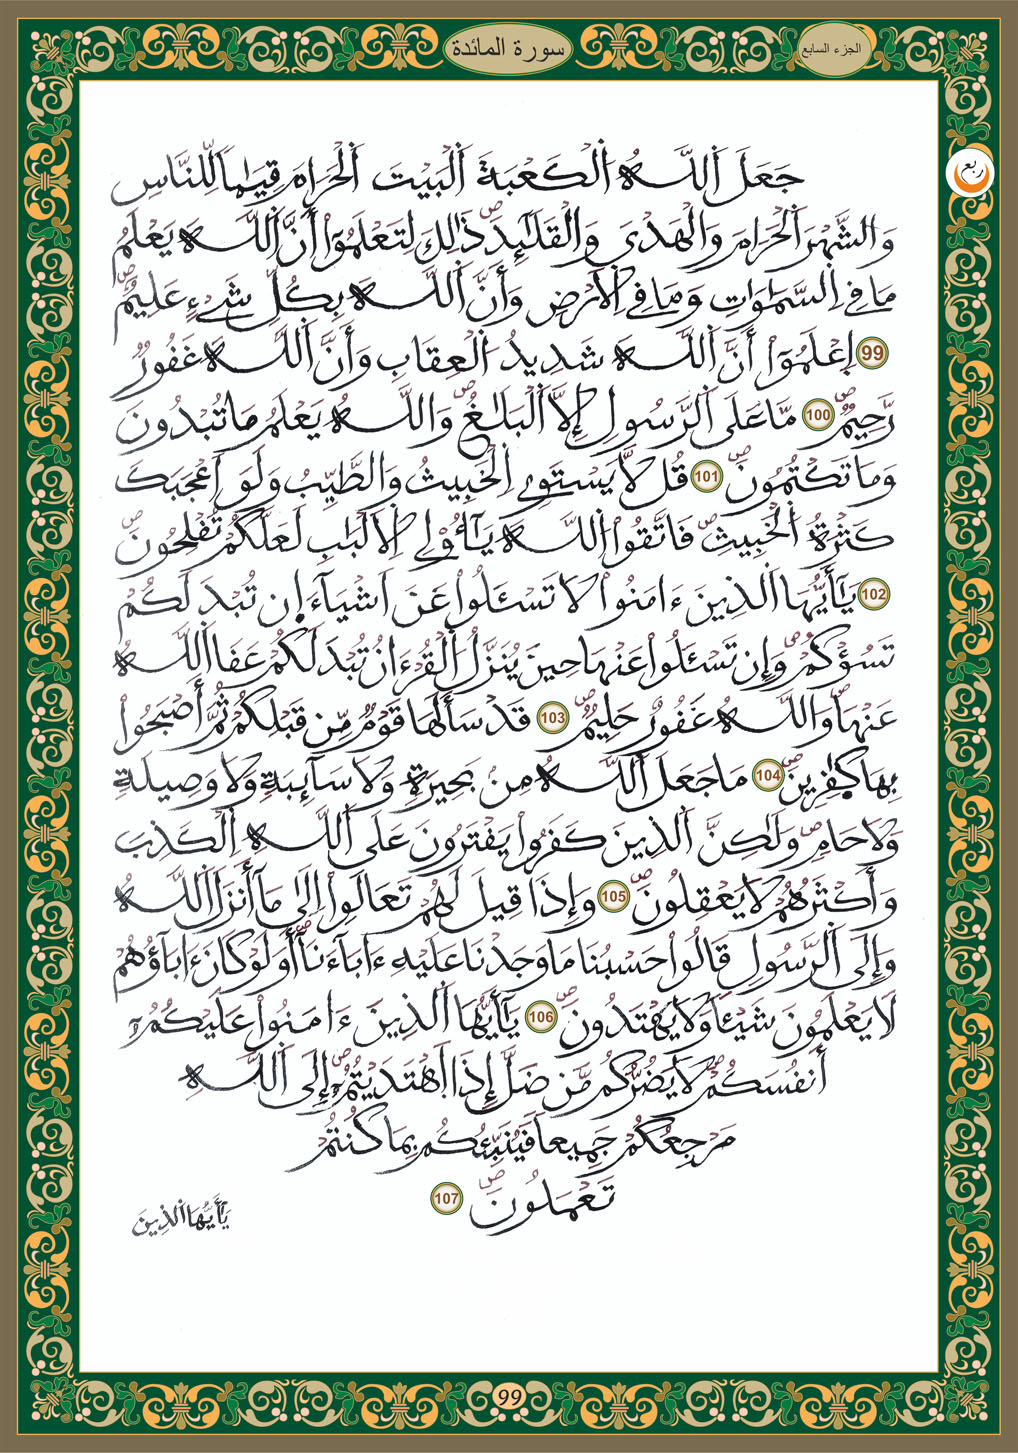 سورة المائدة
الجزء السابع
ربع
جَعَلَ اَللَّهُ اُلْكَعْبَةَ اَلْبَيْتَ اَلْحَرَامَ قِيَٰماً لِّلنَّاسِ
وَالشَّهْرَ اَلْحَرَامَ وَالْهَدْيَ وَالْقَلَٰٓئِدَۖ ذَٰلِكَ لِتَعْلَمُوٓاْ أَنَّ اَللَّهَ يَعْلَمُ
مَا فِے اِلسَّمَٰوَٰتِ وَمَا فِے اِلَارْضِ وَأَنَّ اَللَّهَ بِكُلِّ شَےْءٍ عَلِيمٌۖ
99 اِعْلَمُوٓاْ أَنَّ اَللَّهَ شَدِيدُ اُلْعِقَابِ وَأَنَّ اَللَّهَ غَفُورٌ
رَّحِيمٌۖ 100 مَّا عَلَى اَلرَّسُولِ إِلَّا اَلْبَلَٰغُۖ وَاللَّهُ يَعْلَمُ مَا تُبْدُونَ
وَمَا تَكْتُمُونَۖ 101 قُل لَّا يَسْتَوِے اِلْخَبِيثُ وَالطَّيِّبُ وَلَوَ اَعْجَبَكَ
كَثْرَةُ اُلْخَبِيثِۖ فَاتَّقُواْ اُللَّهَ يَٰٓأُوْلِے اِلَالْبَٰبِ لَعَلَّكُمْ تُفْلِحُونَۖ
102 يَٰٓأَيُّهَا اَلذِينَ ءَامَنُواْ لَا تَسْـَٔلُواْ عَنَ اَشْيَآءَ ا۪ن تُبْدَ لَكُمْ
تَسُؤْكُمْۖ وَإِن تَسْـَٔلُواْ عَنْهَا حِينَ يُنَزَّلُ اُلْقُرْءَانُ تُبْدَ لَكُمْ عَفَا اَللَّهُ
عَنْهَاۖ وَاللَّهُ غَفُورٌ حَلِيمٌۖ 103 قَدْ سَأَلَهَا قَوْمٌ مِّن قَبْلِكُمْ ثُمَّ أَصْبَحُواْ
بِهَا كَٰفِرِينَۖ 104 مَا جَعَلَ اَللَّهُ مِنۢ بَحِيرَةٍ وَلَا سَآئِبَةٍ وَلَا وَصِيلَةٍ
وَلَا حَامٍۖ وَلَٰكِنَّ اَلذِينَ كَفَرُواْ يَفْتَرُونَ عَلَى اَللَّهِ اِلْكَذِبَ
وَأَكْثَرُهُمْ لَا يَعْقِلُونَۖ 105 وَإِذَا قِيلَ لَهُمْ تَعَالَوِاْ اِلَىٰ مَآ أَنزَلَ اَللَّهُ
وَإِلَى اَلرَّسُولِ قَالُواْ حَسْبُنَا مَا وَجَدْنَا عَلَيْهِ ءَابَآءَنَآۖ أَوَلَوْ كَانَ ءَابَآؤُهُمْ
لَا يَعْلَمُونَ شَيْـٔاً وَلَا يَهْتَدُونَۖ 106 يَٰٓأَيُّهَا اَلذِينَ ءَامَنُواْ عَلَيْكُمُۥٓ
أَنفُسَكُمْۖ لَا يَضُرُّكُم مَّن ضَلَّ إِذَا اَهْتَدَيْتُمُۥٓۖ إِلَى اَللَّهِ
مَرْجِعُكُمْ جَمِيعاً فَيُنَبِّئُكُم بِمَا كُنتُمْ
تَعْمَلُونَۖ 107
يَٰٓأَيُّهَا اَلذِينَ
99